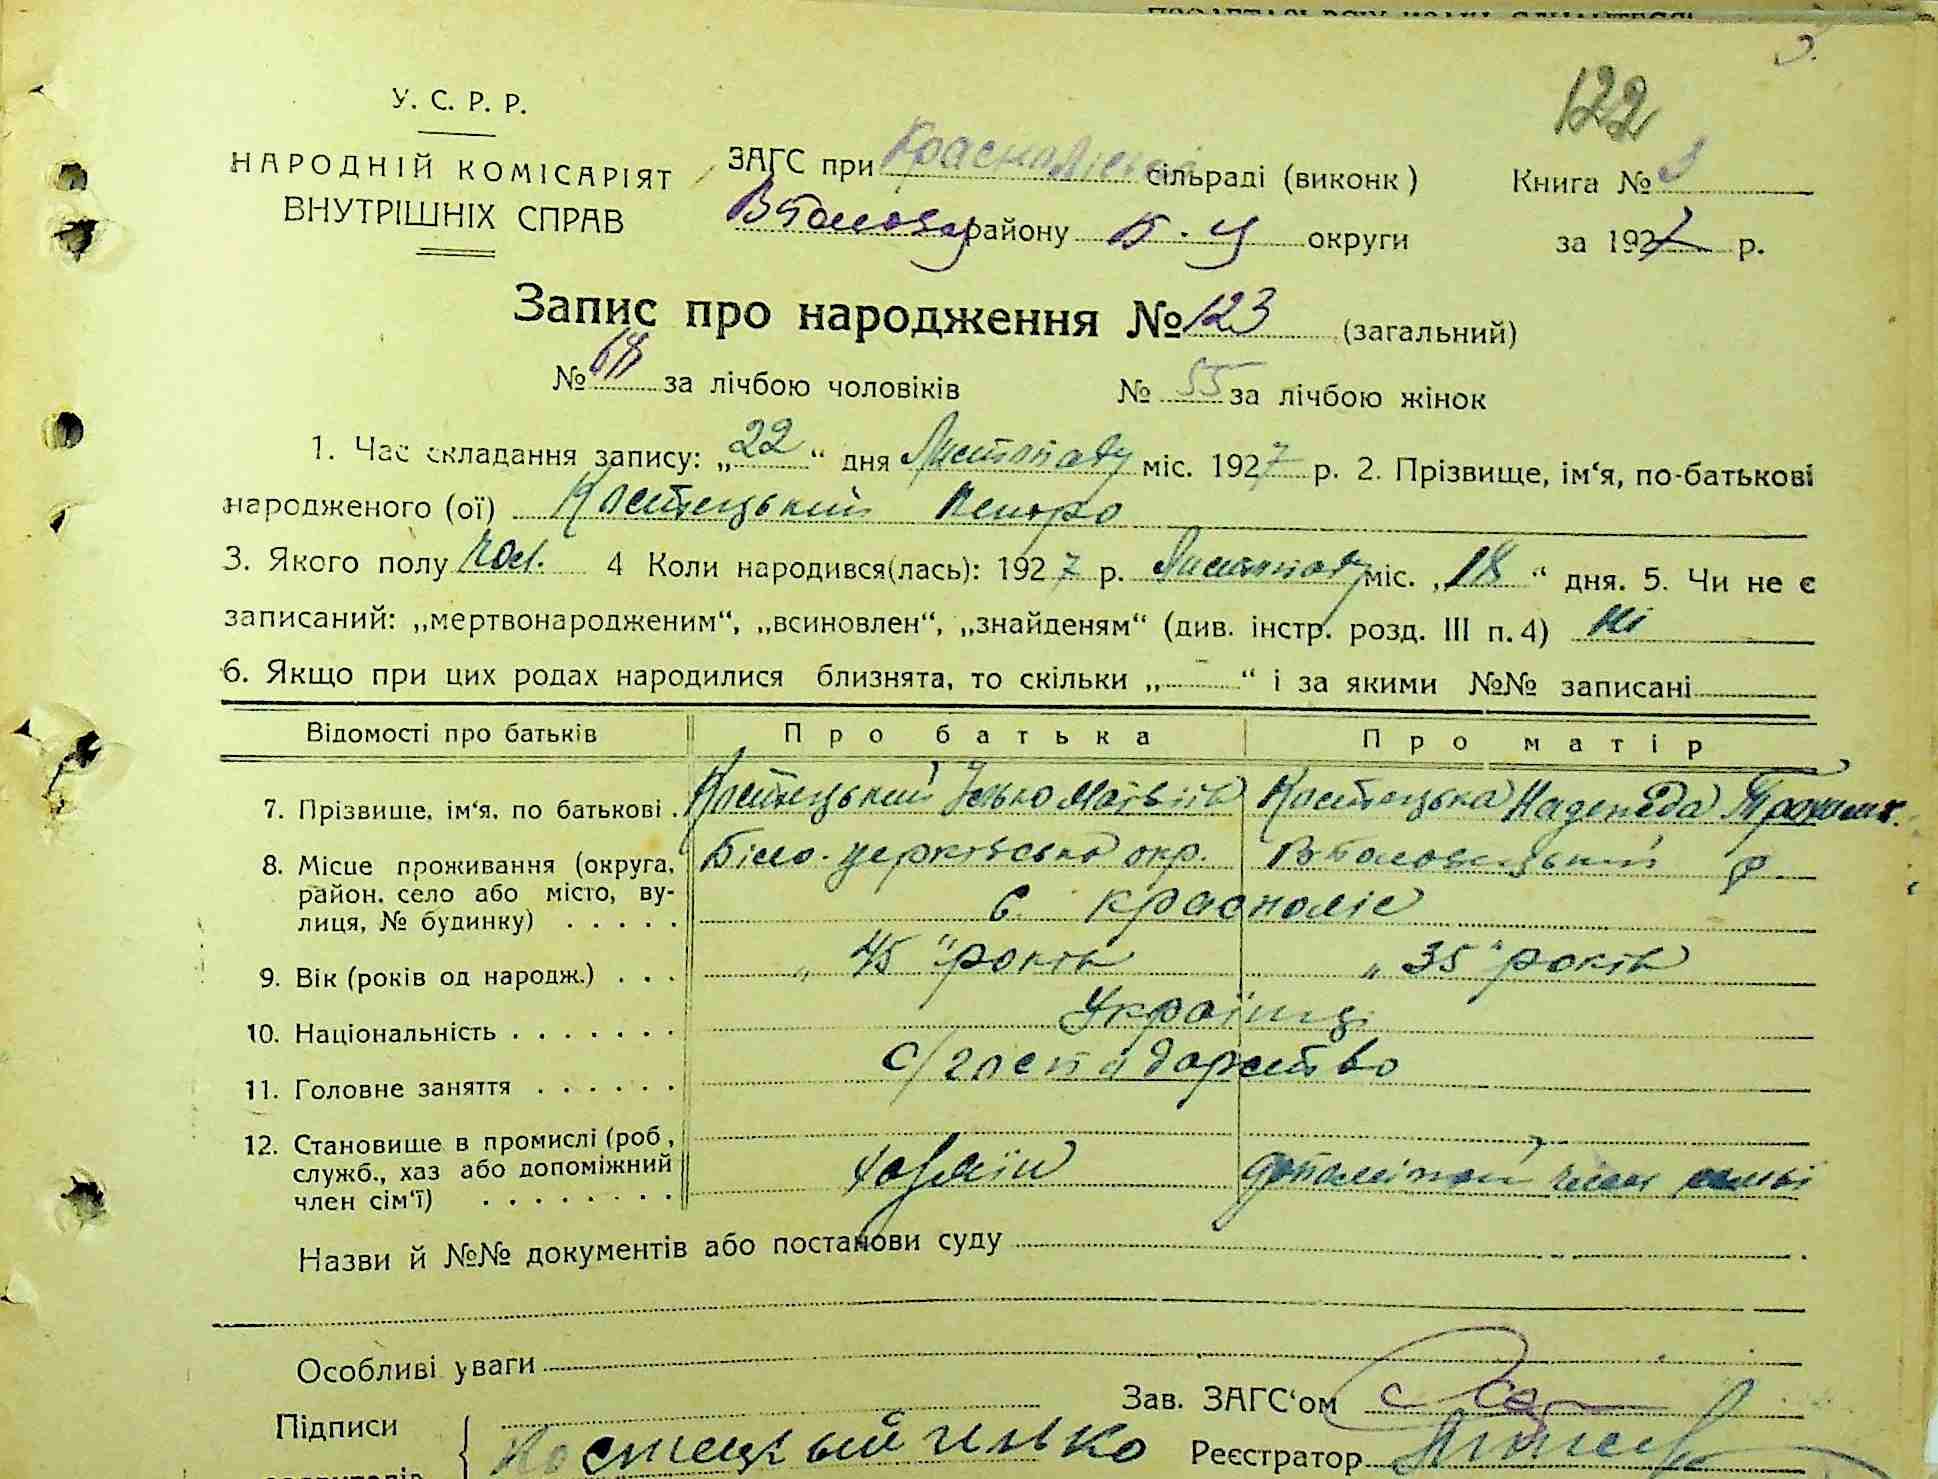 У. С. Р. Р.
НАРОДНІЙ КОМІСАРІЯТ
ВНУТРІШНІХ СПРАВ
122
ЗАГС при сільраді (виконк) Книга №
району Б. Ц округи за 1927 р.
Запис про народження № 123 (загальний)
№ 68 за лічбою чоловіків № 55 за лічбою жінок
1. Час складання запису: „22“ дня Листопаду міс. 1927 р. 2. Прізвище, ім‘я, по-батькові
народженого (ої) Костецький Петро
3. Якого полу чол. 4 Коли народився(лась): 1927 р. Листопаду міс. „18“ дня. 5. Чи не є
записаний: „мертвонародженим“, „всиновлен“, „знайденям“ (див. інстр. розд. III п. 4) Ні
6. Якщо при цих родах народилися близнята, то скільки „—“ і за якими №№ записані
Відомості про батьків Про батька Про матір
7. Прізвище, ім‘я, по батькові Костецький Ілько Матвіїв Костецька Надежда
8. Місце проживання (округа, район, село або місто, ву-
лиця, № будинку) Біло-церківська окр. р.
с. Красноліс
9. Вік (років од народж.) „45“ років „35“ років
10. Національність Українці
11. Головне заняття с/господарство
12. Становище в промислі (роб, служб., хаз або допоміжний
член сім‘ї) хазяїн допоміжний член
Назви й №№ документів або постанови суду
Особливі уваги
Зав. ЗАГС‘ом
Підписи
Костецький Илько Реєстратор